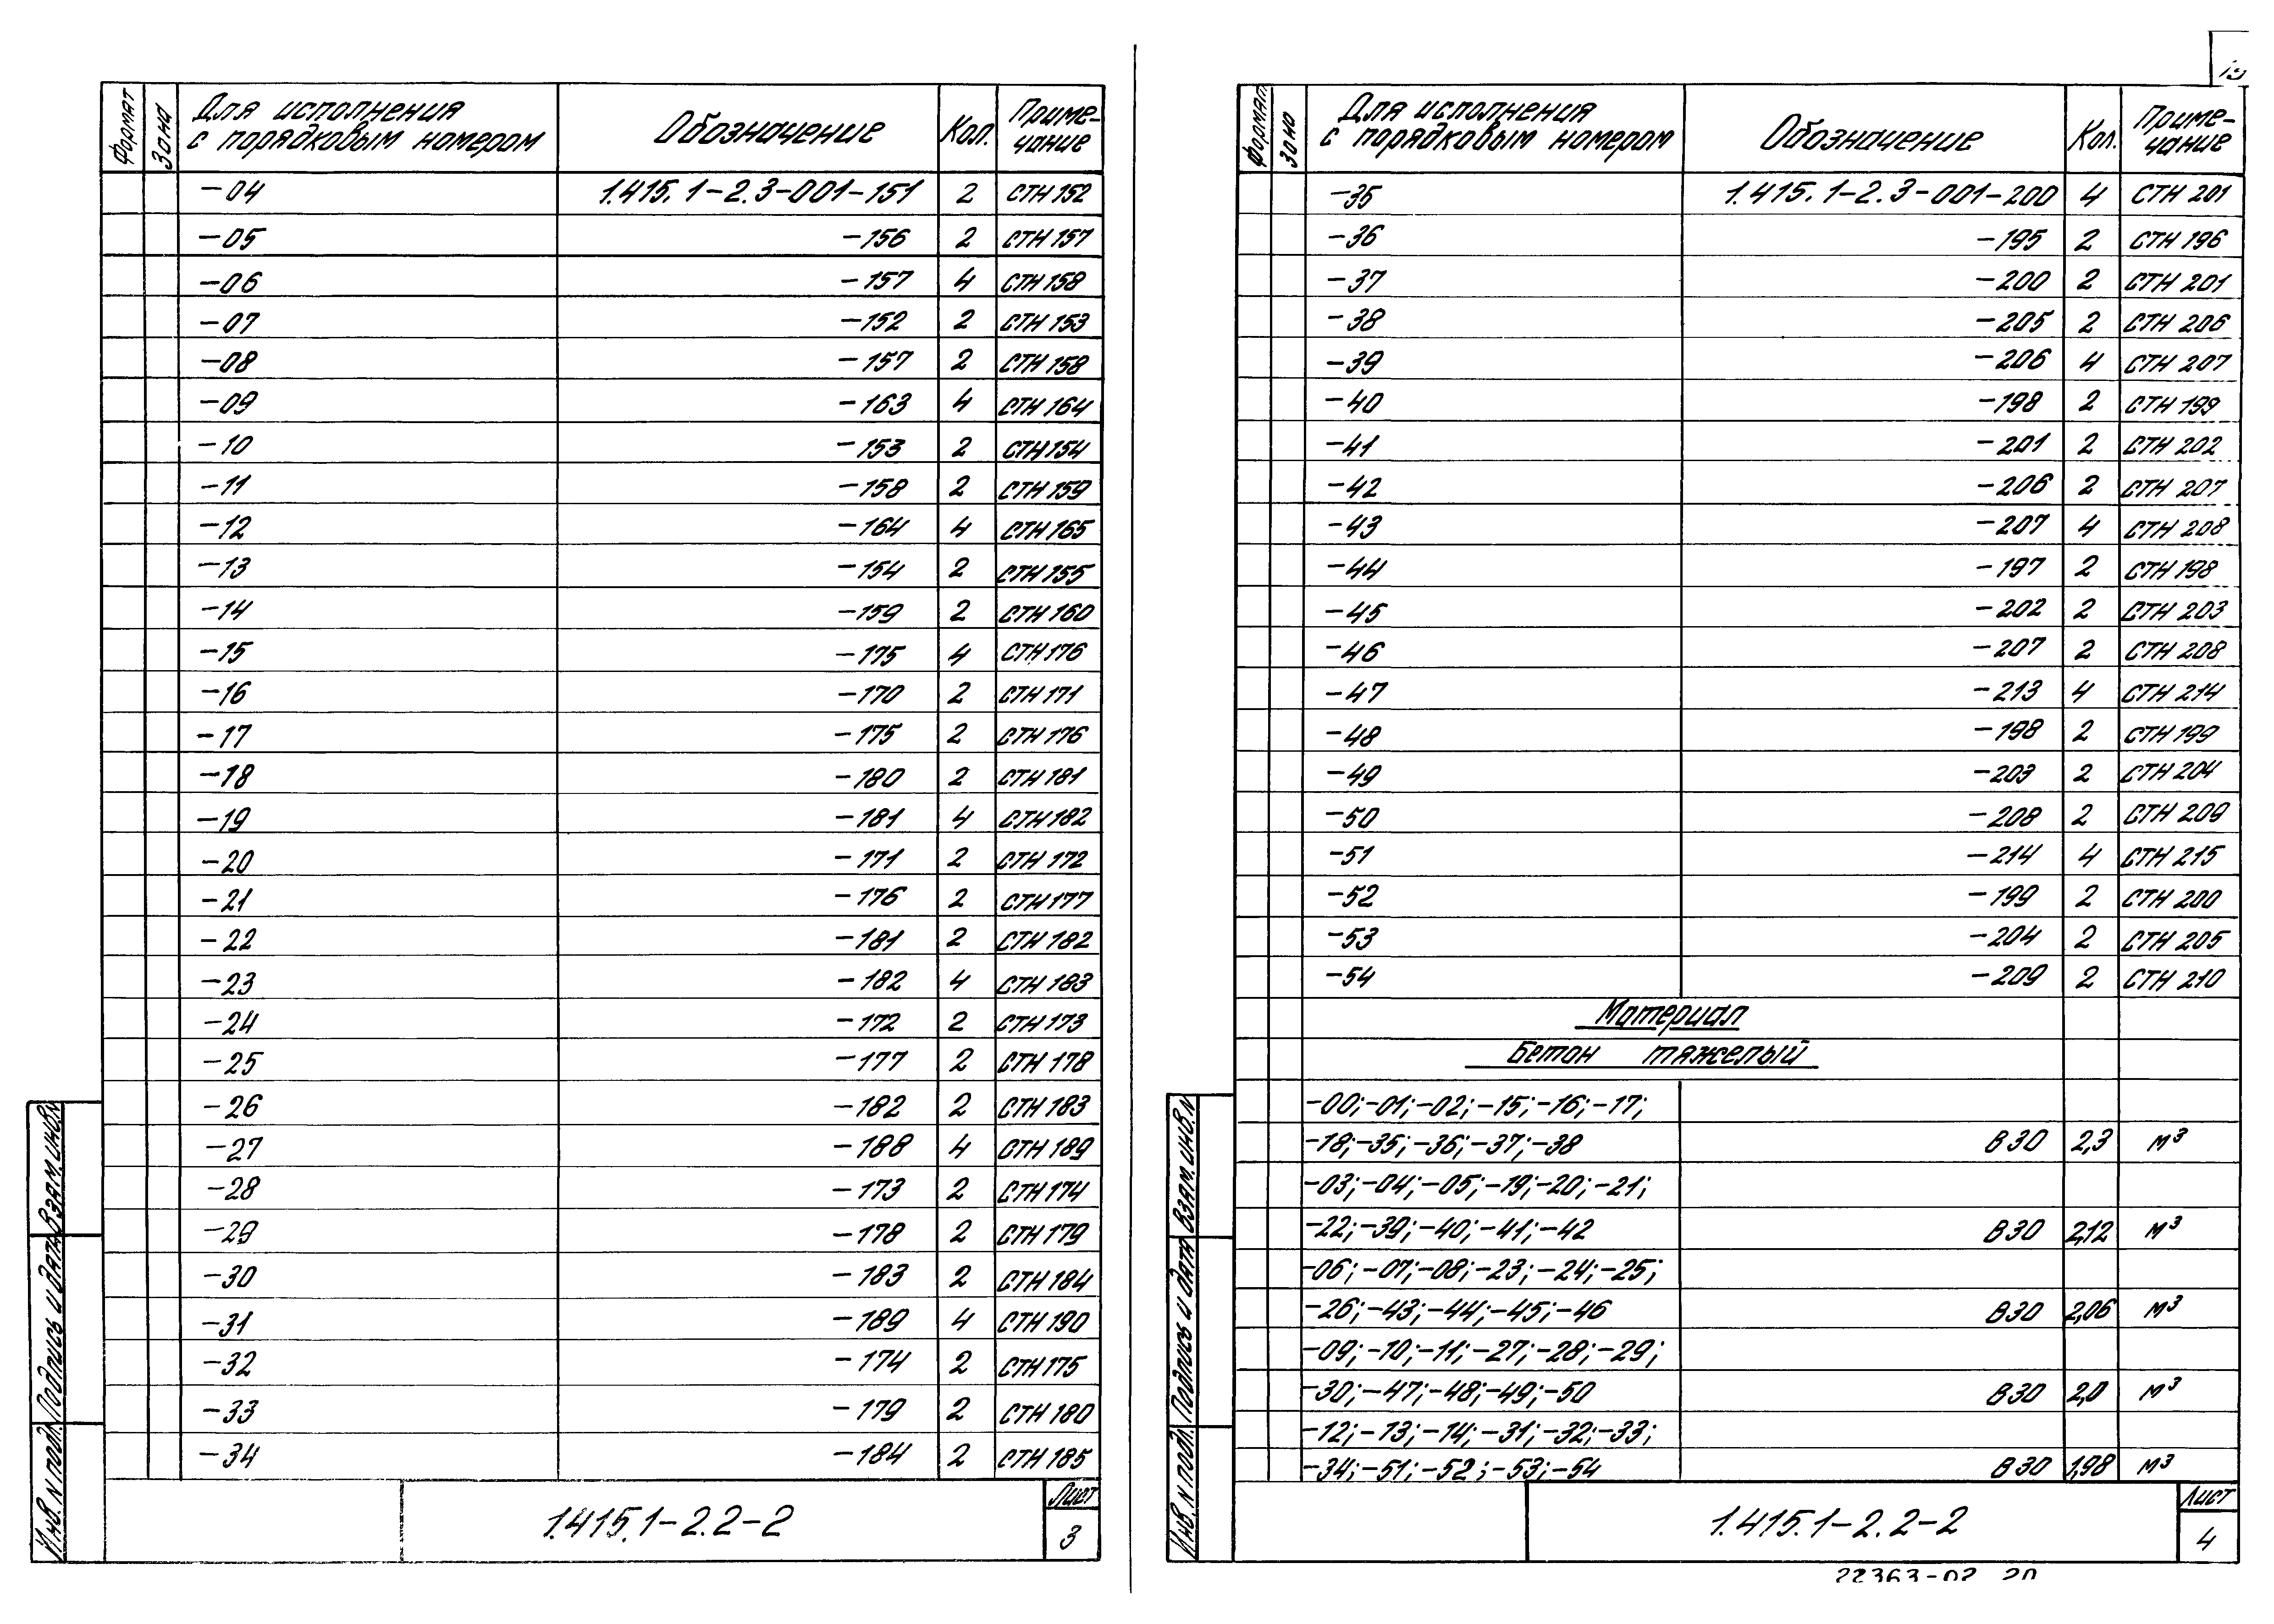 Формат Зона Для исполнения с порядковым номером Обозначение Кол. Примечание
-04 1.415.1-2.3-001-151 2 СТН 152
-05 -156 2 СТН 157
-06 -157 4 СТН 158
-07 -152 2 СТН 153
-08 -157 2 СТН 158
-09 -163 4 СТН 164
-10 -153 2 СТН 154
-11 -158 2 СТН 159
-12 -164 4 СТН 165
-13 -154 2 СТН 155
-14 -159 2 СТН 160
-15 -175 4 СТН 176
-16 -170 2 СТН 171
-17 -175 2 СТН 176
-18 -180 2 СТН 181
-19 -181 4 СТН 182
-20 -171 2 СТН 172
-21 -176 2 СТН 177
-22 -181 2 СТН 182
-23 -182 4 СТН 183
-24 -172 2 СТН 173
-25 -177 2 СТН 178
-26 -182 2 СТН 183
-27 -188 4 СТН 189
-28 -173 2 СТН 174
-29 -178 2 СТН 179
-30 -183 2 СТН 184
-31 -189 4 СТН 190
-32 -174 2 СТН 175
-33 -179 2 СТН 180
-34 -184 2 СТН 185
Инв. N подл. Подпись и дата Взам. инв. N
1.415.1-2.2-2
Лист
3
Формат Зона Для исполнения с порядковым номером Обозначение Кол. Примечание
-35 1.415.1-2.3-001-200 4 СТН 201
-36 -195 2 СТН 196
-37 -200 2 СТН 201
-38 -205 2 СТН 206
-39 -206 4 СТН 207
-40 -198 2 СТН 199
-41 -201 2 СТН 202
-42 -206 2 СТН 207
-43 -207 4 СТН 208
-44 -197 2 СТН 198
-45 -202 2 СТН 203
-46 -207 2 СТН 208
-47 -213 4 СТН 214
-48 -198 2 СТН 199
-49 -203 2 СТН 204
-50 -208 2 СТН 209
-51 -214 4 СТН 215
-52 -199 2 СТН 200
-53 -204 2 СТН 205
-54 -209 2 СТН 210
Материал
Бетон тяжелый
-00; -01; -02; -15; -16; -17;
-18; -35; -36; -37; -38 В30 2,3 м³
-03; -04; -05; -19; -20; -21;
-22; -39; -40; -41; -42 В30 2,12 м³
-06; -07; -08; -23; -24; -25;
-26; -43; -44; -45; -46 В30 2,06 м³
-09; -10; -11; -27; -28; -29;
-30; -47; -48; -49; -50 В30 2,0 м³
-12; -13; -14; -31; -32; -33;
-34; -51; -52; -53; -54 В30 1,98 м³
Инв. N подл. Подпись и дата Взам. инв. N
1.415.1-2.2-2
Лист
4
22363-02 20